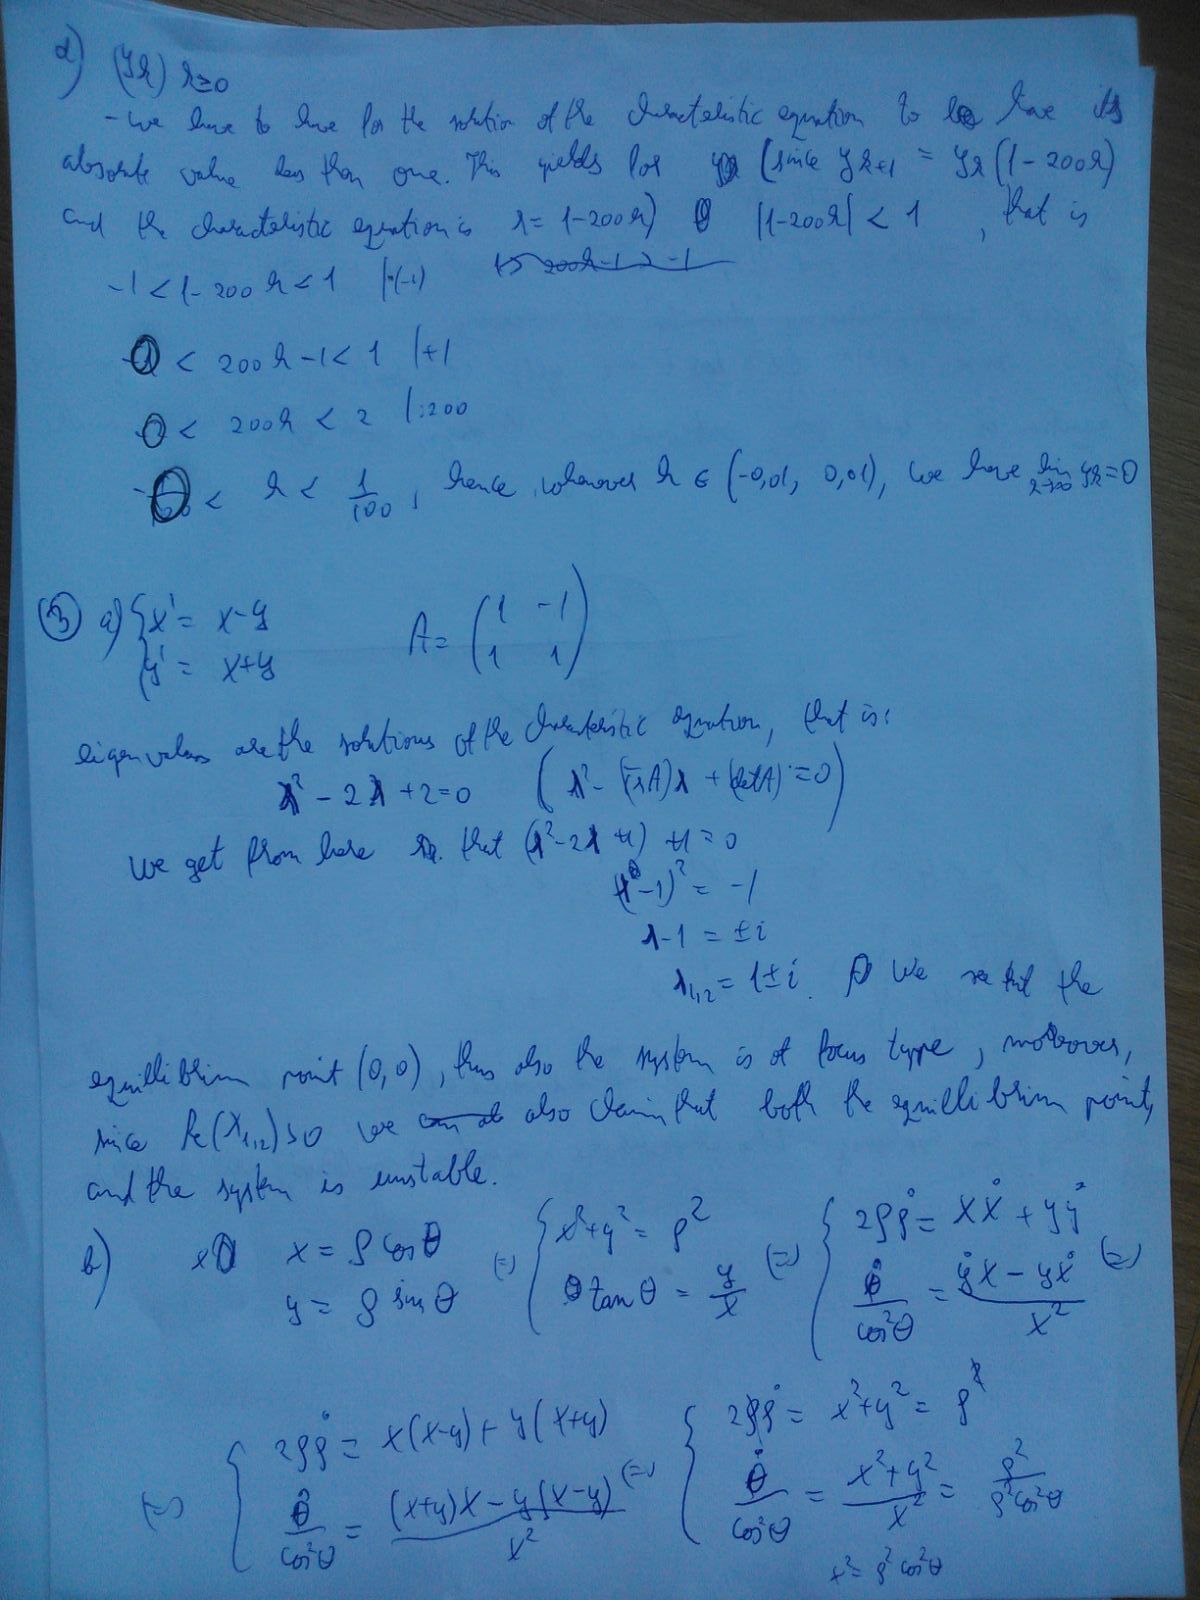 d) (yk) k≥0
- we have to have for the solution of the characteristic equation to have its
absolute value less than one. This yields for (since yk+1 = yk (1-200h)
and the characteristic equation is r = 1-200h) |1-200h| < 1 , that is
-1 < 1-200h < 1 |·(-1)
< 200h-1 < 1 |+1
0 < 200h < 2 |:200
0 < h < 1/100 , hence, whenever h ∈ (-0,01, 0,01), we have lim k→∞ yk = 0
③ a) { x' = x-y
y' = x+y
A = ( 1 -1
1 1 )
eigenvalues are the solutions of the characteristic equation, that is:
λ² - 2λ + 2 = 0 (λ² - (TrA)λ + (detA) = 0)
We get from here that (λ²-2λ+1) +1 = 0
(λ-1)² = -1
λ-1 = ±i
λ1,2 = 1±i. We the
equillibrium point (0,0), thus also the system is of focus type, moreover,
since Re(λ1,2)>0 we also claim that both the equillibrium point,
and the system is unstable.
b) x = ρ cos θ
y = ρ sin θ
(=) { x²+y² = ρ²
tan θ = y/x
(=) { 2ρρ̇ = xẋ + yẏ
θ̇/cos²θ = (ẏx - yẋ)/x² (=)
(=) { 2ρρ̇ = x(x-y) + y(x+y)
θ̇/cos²θ = ((x+y)x - y(x-y))/x²
(=) { 2ρρ̇ = x²+y² = ρ²
θ̇/cos²θ = (x²+y²)/x² = ρ²/(ρ²cos²θ)
x² = ρ² cos²θ